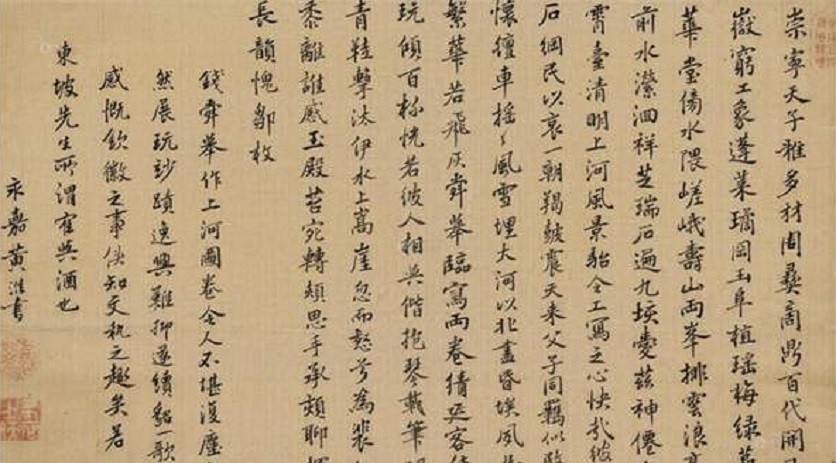 崇寧天子雅多材周彝商鼎百代開
嶽窮工象蓬萊璚岡玉阜植瑶梅緑
華堂倚水隈嵯峨壽山兩峯排雲浪
前水瀠洄祥芝瑞石遍九垓憂茲神僊
霄臺清明上河風景貽令工寫之心快哉彼
石綱民以哀一朝羯皷震天來父子同羈似
懷繵車摇〻風雪埋大河以北盡昏埃風
繁華若飛灰舜舉臨寫兩卷猜延客
玩傾百杯恍若彼人相與偕抱琴載筆
青鞋擊汰伊水上嵩崖忽而愁兮為裴
黍離誰感玉殿苔宛轉頰思手承頦聊
長韻愧鄒枚
錢舜舉作上河圖卷令人不堪復
然展玩妙蹟逸興難抑遂續貂一歌
感慨欽徽之事俟知文執之趣矣若
東坡先生所謂有與酒也
永嘉黄淮書